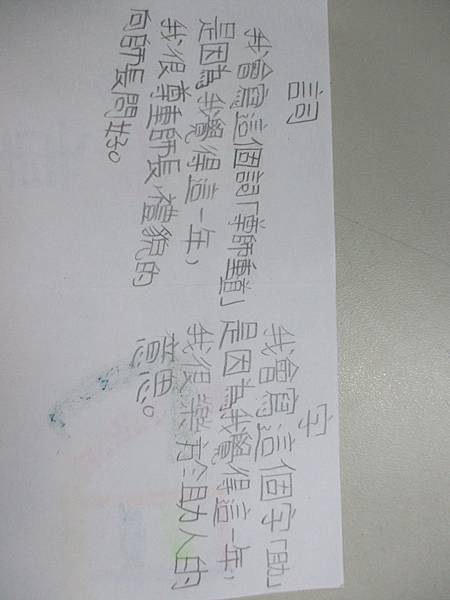 詞
我會寫這個詞「尊師重道」
是因為我覺得這一年，
我很尊重師長，禮貌的
向師長問好。
字
我會寫這個字「助」
是因為我覺得這一年，
我很樂於助人的
意思。